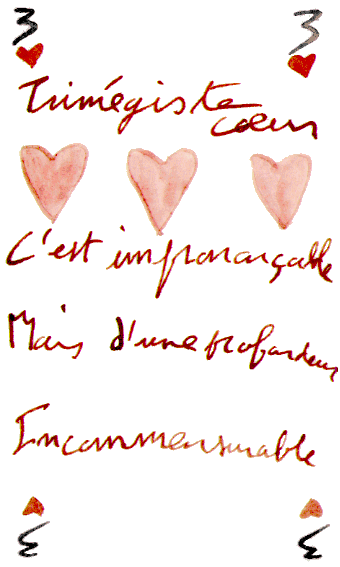 3 3
Trimégiste
cœur
C'est imprononçable
Mais d'une profondeur
Incommensurable
3 3